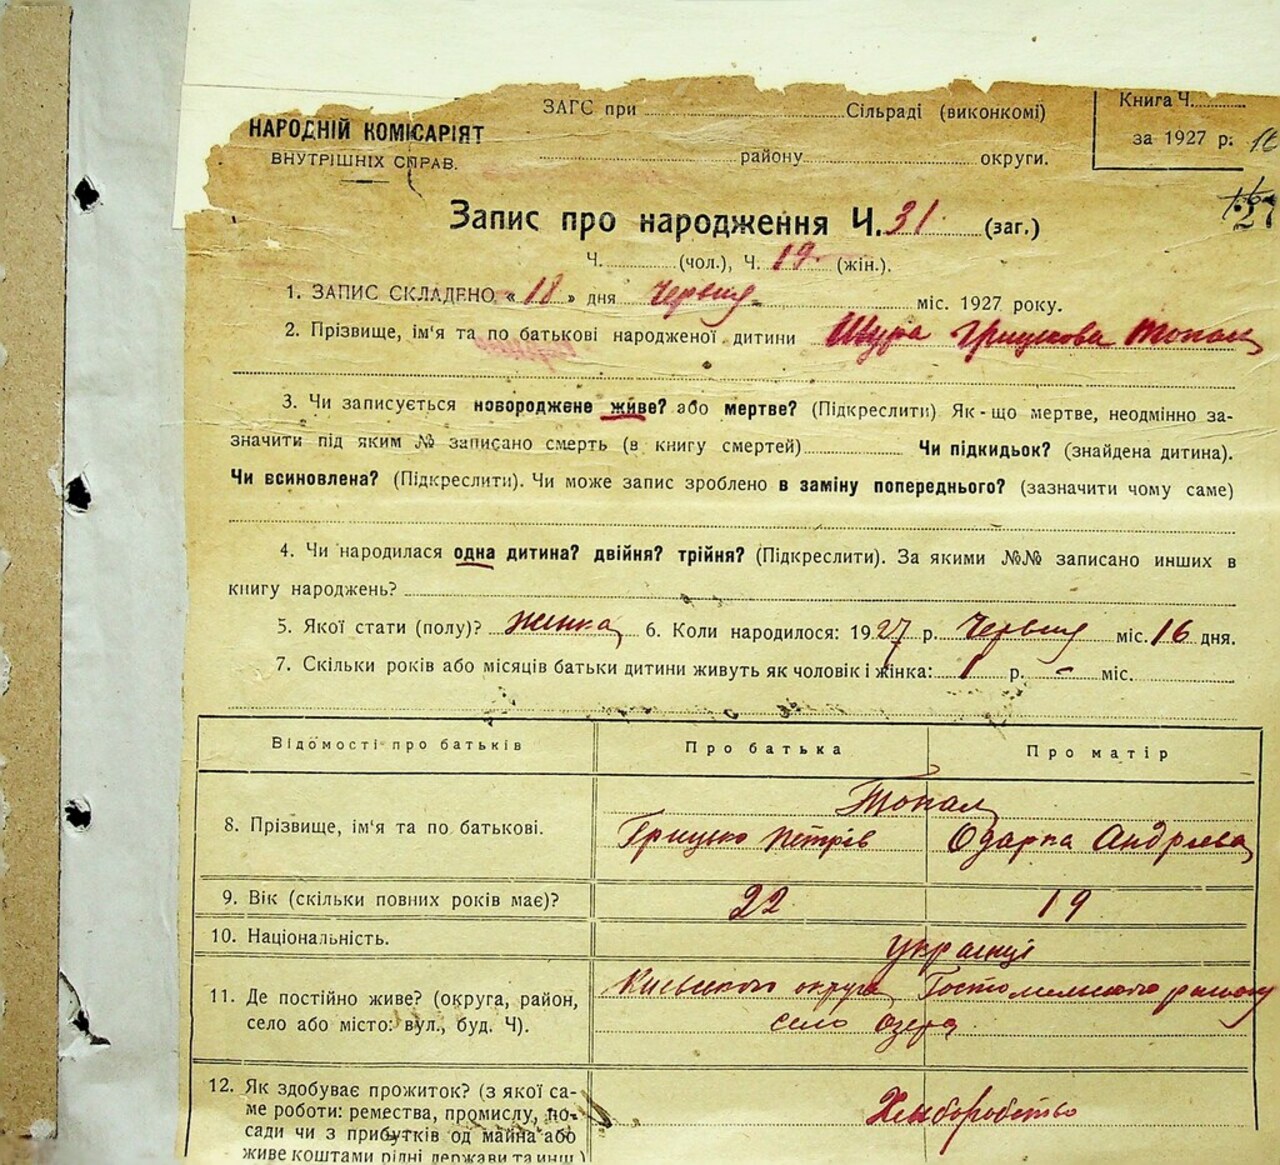 ЗАГС при Сільраді (виконкомі)
НАРОДНІЙ КОМІСАРІЯТ
ВНУТРІШНІХ СПРАВ.
району округи.
Книга Ч.
за 1927 р.
Запис про народження Ч. 31 (заг.)
Ч. (чол.), Ч. 19 (жін.).
1. ЗАПИС СКЛАДЕНО „ 18 " дня Червня міс. 1927 року.
2. Прізвище, ім'я та по батькові народженої дитини Шура Грицкова Топал
3. Чи записується новороджене живе? або мертве? (Підкреслити) Як-що мертве, неодмінно за-
значити під яким № записано смерть (в книгу смертей) Чи підкидьок? (знайдена дитина).
Чи всиновлена? (Підкреслити). Чи може запис зроблено в заміну попереднього? (зазначити чому саме)
4. Чи народилася одна дитина? двійня? трійня? (Підкреслити). За якими №№ записано инших в
книгу народжень?
5. Якої стати (полу)? жінка 6. Коли народилося: 1927 р. Червня міс. 16 дня.
7. Скільки років або місяців батьки дитини живуть як чоловік і жінка: 1 р. – міс.
Відомості про батьків Про батька Про матір
Топал
8. Прізвище, ім'я та по батькові. Грицько Петрів Одарка Андрієва
9. Вік (скільки повних років має)? 22 19
10. Національність. українці
11. Де постійно живе? (округа, район, Київського округа Гостомельського району
село або місто: вул., буд. Ч). село Озера
12. Як здобуває прожиток? (з якої са-
ме роботи: ремества, промислу, по- Хліборобство
сади чи з прибутків од майна або
живе коштами рідні держави та инш.)